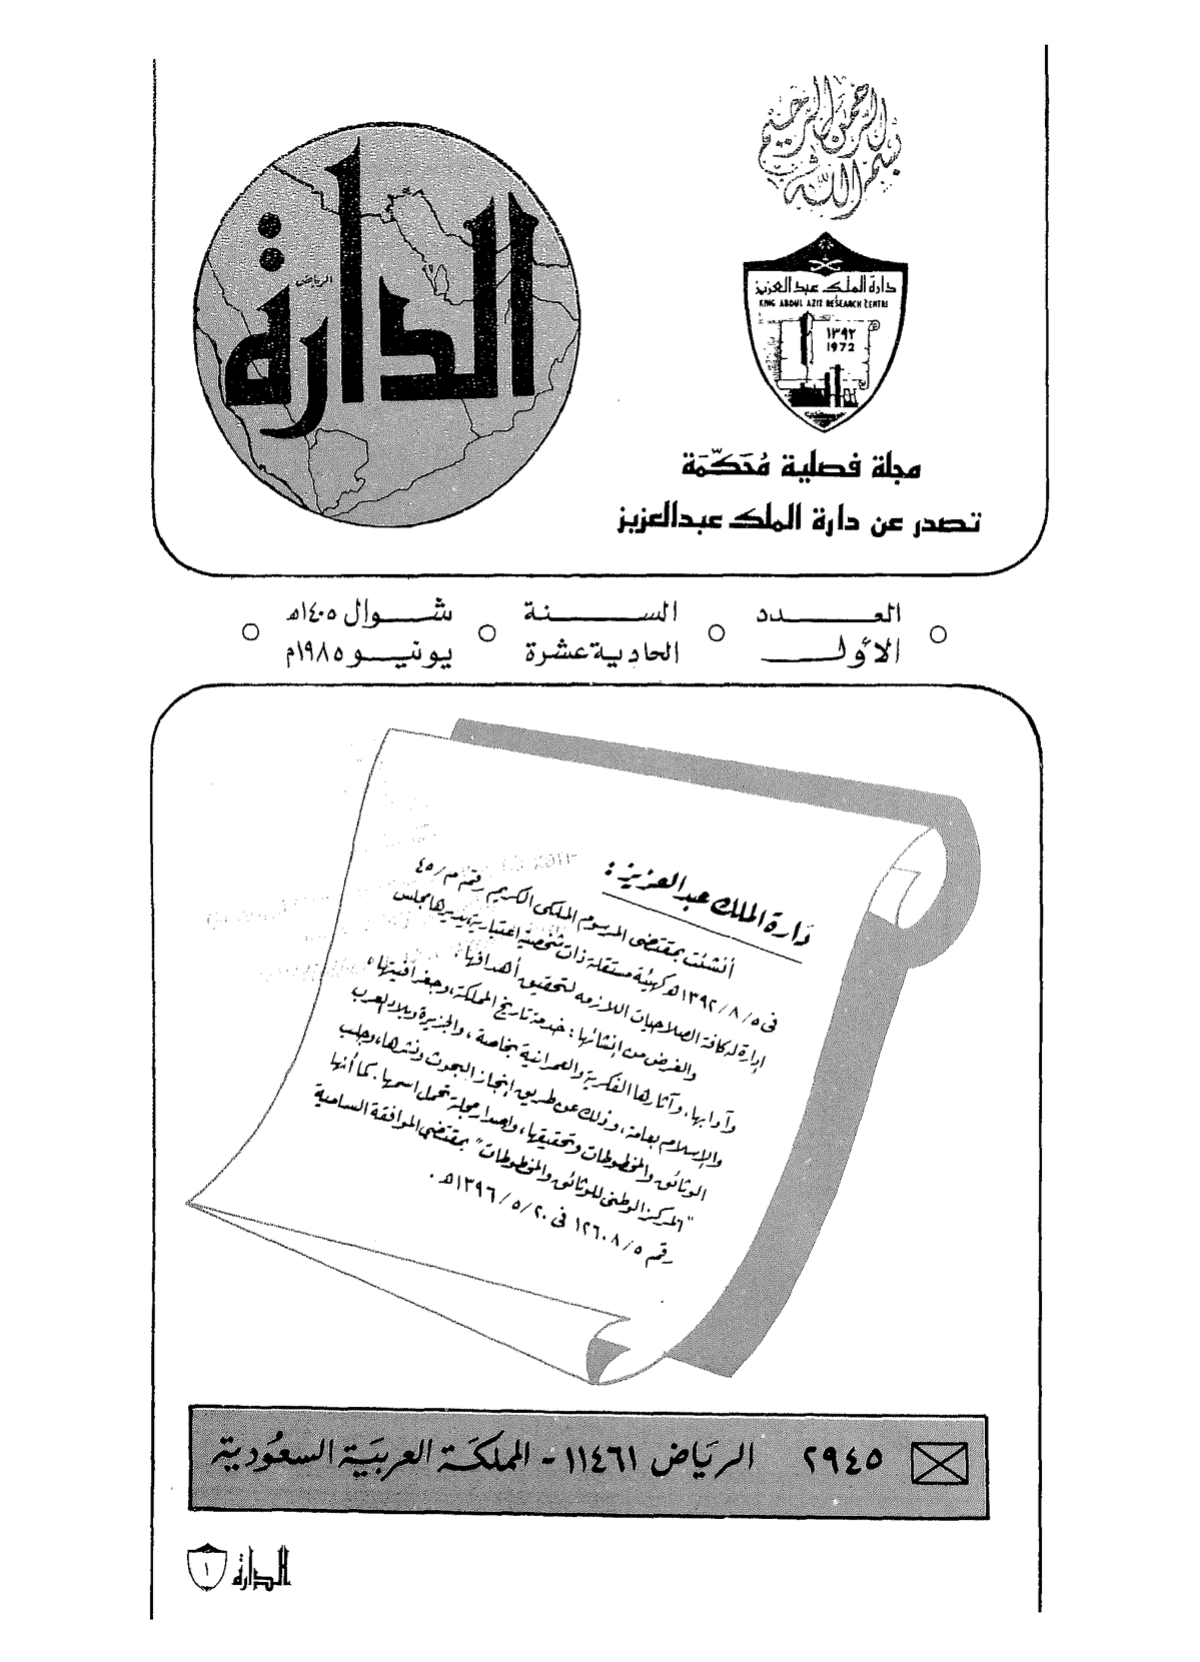 بسم الله الرحمن الرحيم
الدارة
الرياض
دارة الملك عبد العزيز
KING ABDUL AZIZ RESEARCH CENTRE
١٣٩٢
1972
مجلة فصلية مُحَكَّمَة
تصدر عن دارة الملك عبدالعزيز
العدد الأول
السنة الحادية عشرة
شوال ١٤٠٥هـ
يونيو ١٩٨٥م
دَارة الملك عبد العزيز :
أنشئت بمقتضى المرسوم الملكى الكريم رقم م/٤٥
فى ٥/٨/١٣٩٢هـ كهيئة مستقلة ذات شخصية اعتبارية، يديرها مجلس
إدارة له كافة الصلاحيات اللازمة لتحقيق أهدافها .
والغرض من إنشائها : خدمة تاريخ المملكة، وجغرافيتها،
وآدابها، وآثارها الفكرية والعمرانية بخاصة، والجزيرة وبلاد العرب
والإسلام بعامة، وذلك عن طريق إنجاز البحوث ونشرها، وجلب
الوثائق والمخطوطات وتحقيقها، وإصدار مجلة تحمل اسمها. كما أنها
"المركز الوطنى للوثائق والمخطوطات" بمقتضى الموافقة السامية
رقم ١٢٦٠٨/٥ فى ٢٠/٥/١٣٩٦هـ .
٢٩٤٥ الرياض ١١٤٦١ - المملكة العربية السعودية
الدارة ١